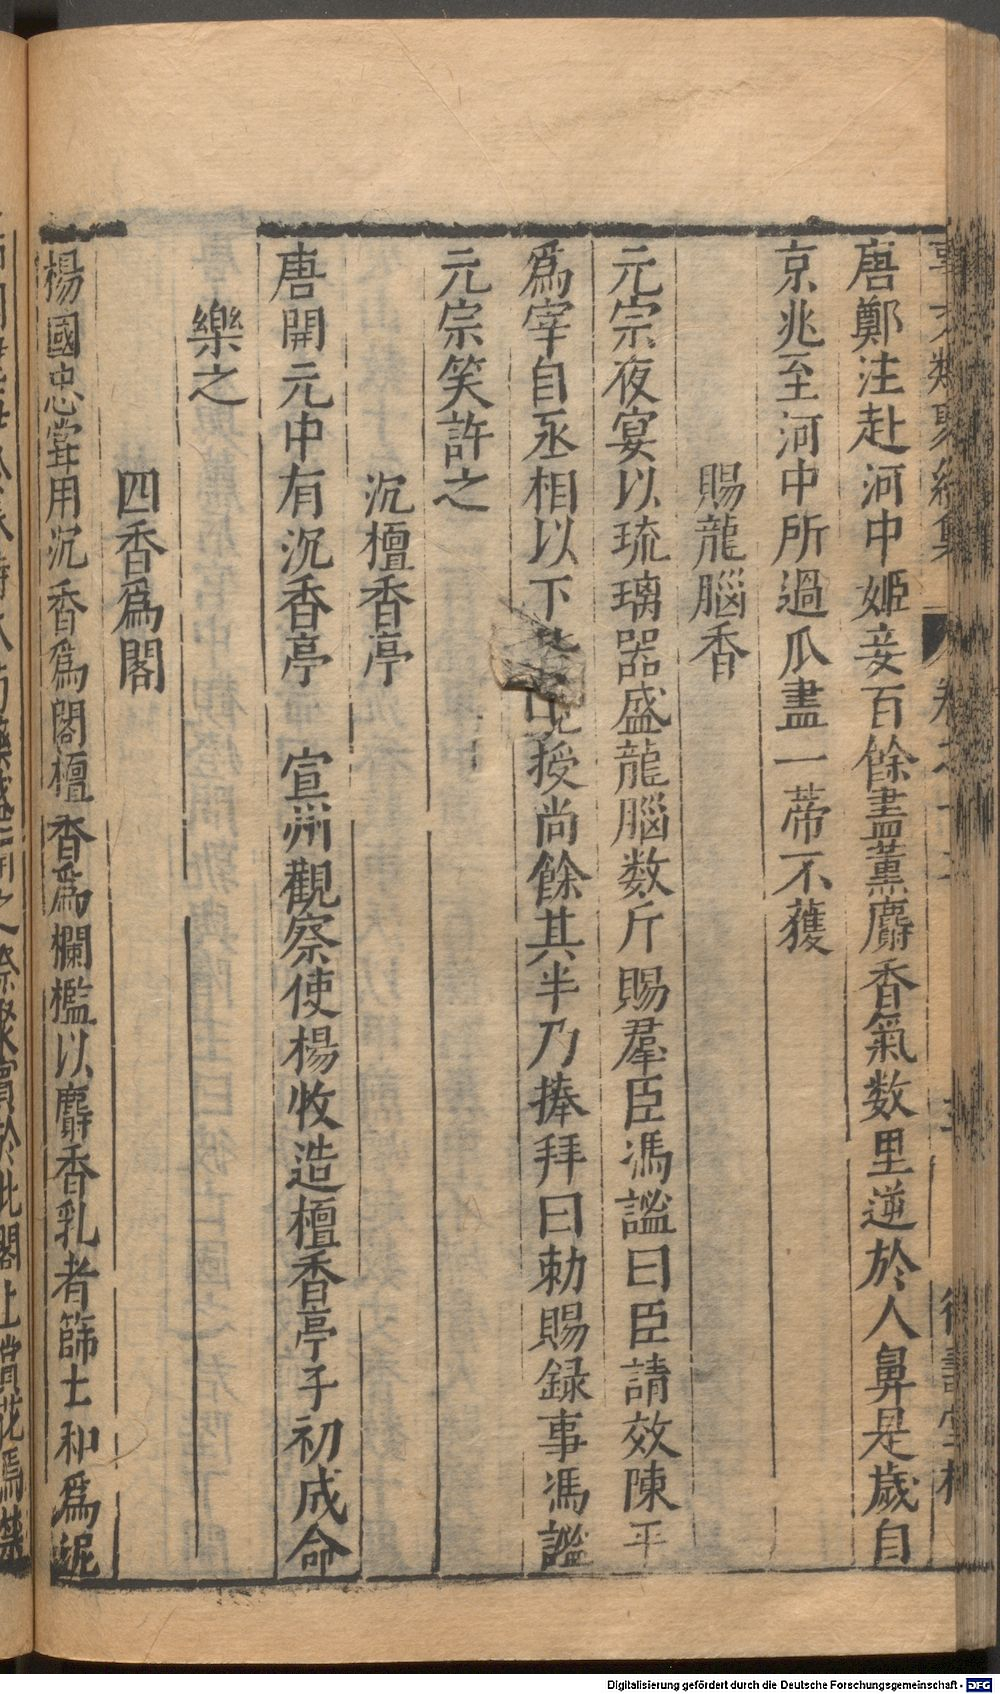 事文類聚續集 卷之十二 德壽堂梓
唐鄭注赴河中姬妾百餘盡薰麝香氣数里逆於人鼻是歲自
京兆至河中所過瓜盡一蒂不獲
賜龍腦香
元宗夜宴以琉璃器盛龍腦数斤賜羣臣馮謐曰臣請效陳平
爲宰自丞相以下授尚餘其半乃捧拜曰勅賜録事馮謐
元宗笑許之
沉檀香亭
唐開元中有沉香亭 宣州觀察使楊收造檀香亭子初成命
樂之
四香爲閣
楊國忠甞用沉香爲閣檀香爲欄檻以麝香乳者篩土和爲䘦
Digitalisierung gefördert durch die Deutsche Forschungsgemeinschaft - DFG